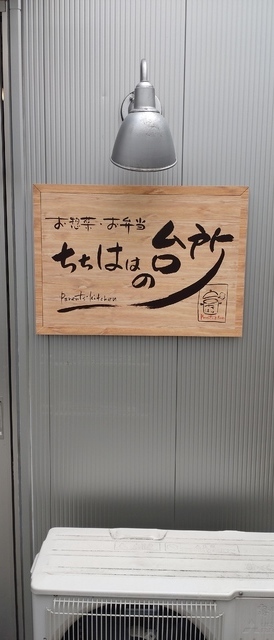 お惣菜・お弁当
ちちははの台所
Parents' kitchen